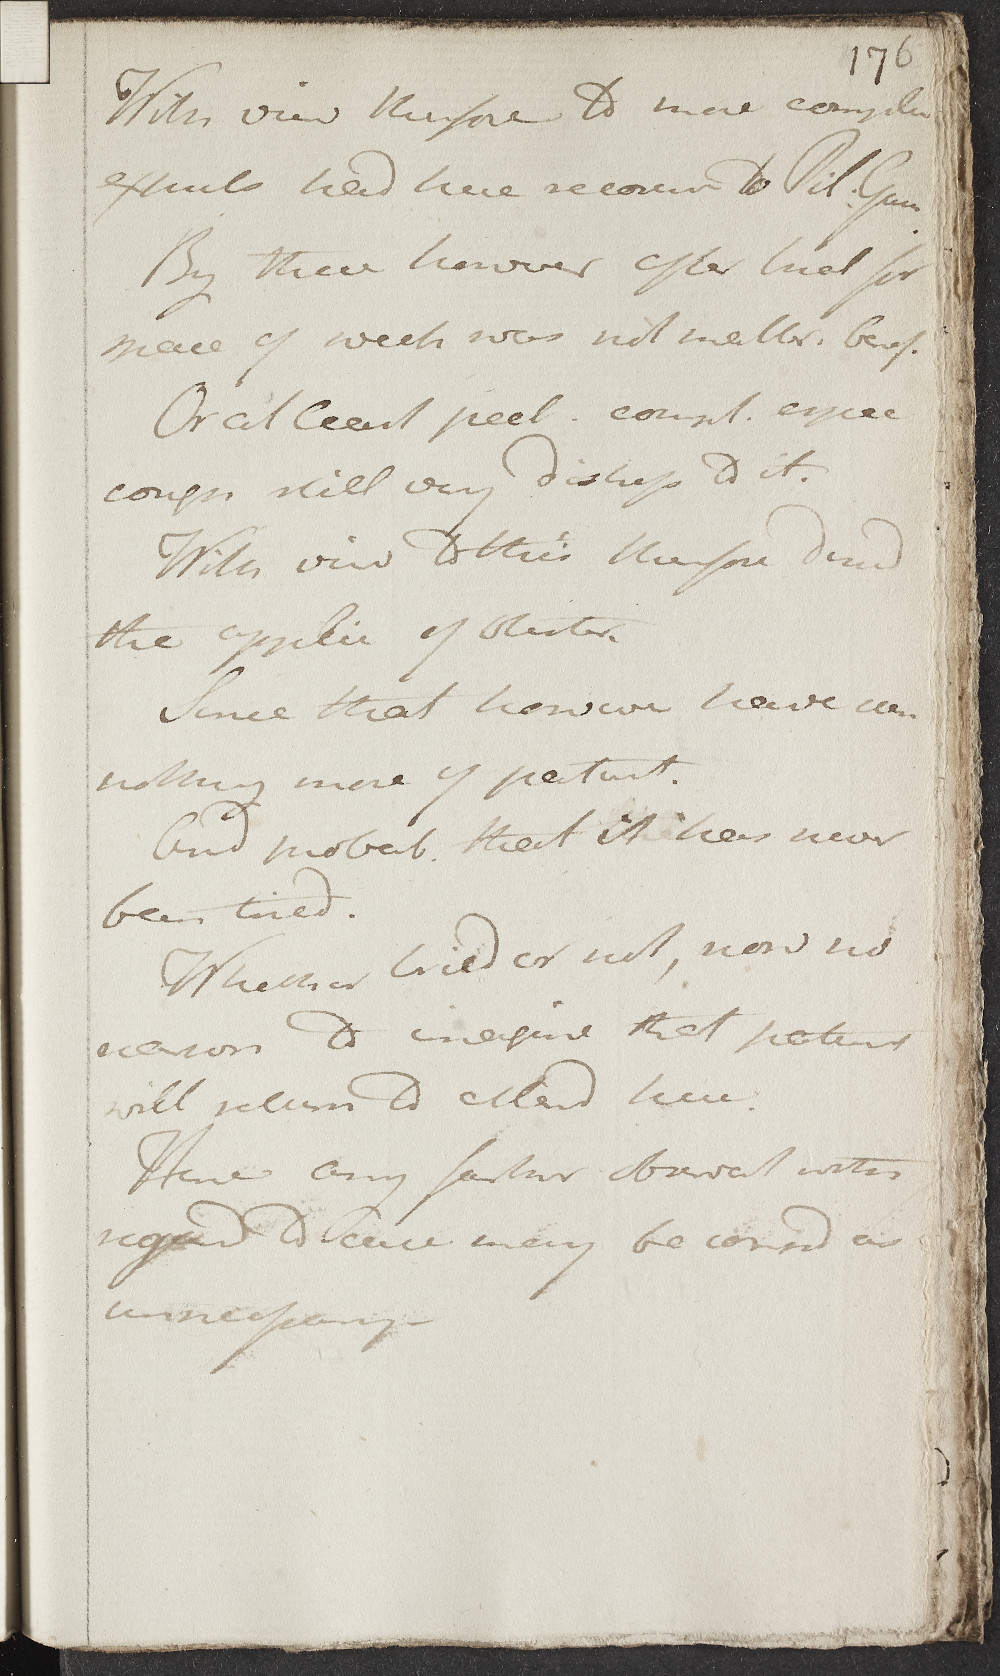 176
With view therefore to more complete
expuls had here recourse to Pil. Gum.
By these however after trial for
space of week was not matter. benef.
Or at least pect. compl. espec
cough still very distress to it.
With view to this therefore direct
the applic of blister.
Since that however have seen
nothing more of patient.
And probab. that it has never
been tried.
Whether tried or not, now no
reason to imagine that patient
will return to attend here.
Hence any farther observat with
regard to case may be consd as
unnecessary